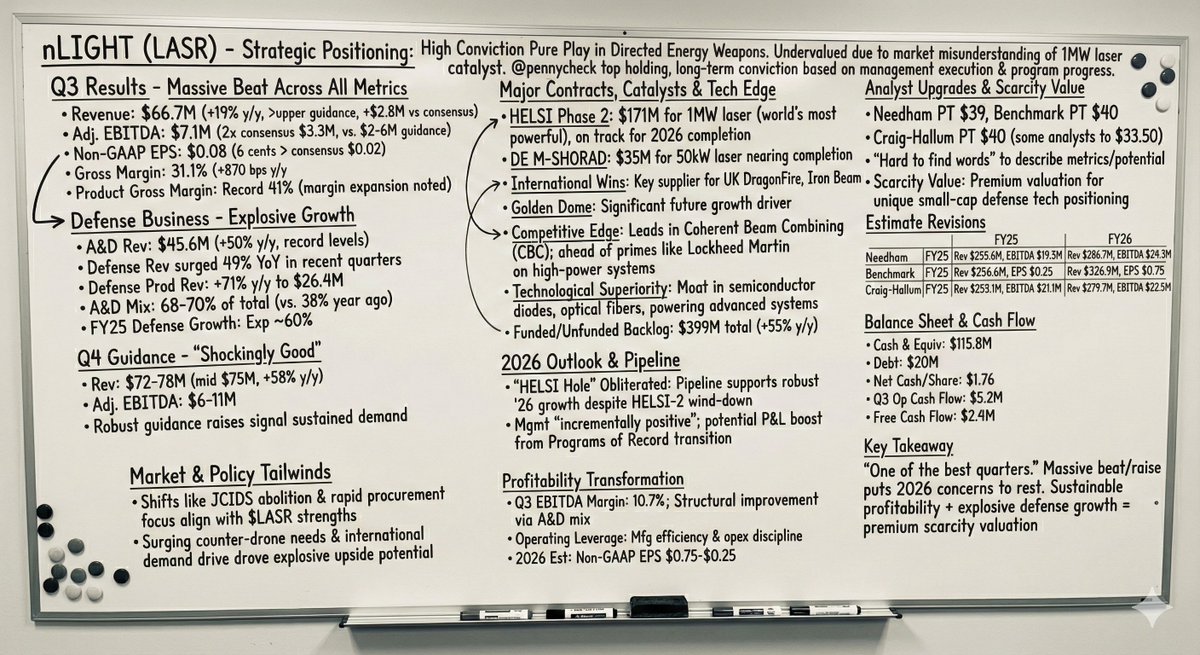 nLIGHT (LASR) – Strategic Positioning: High Conviction Pure Play in Directed Energy Weapons. Undervalued due to market misunderstanding of 1MW laser
catalyst. @pennycheck top holding, long-term conviction based on management execution & program progress.
Q3 Results – Massive Beat Across All Metrics
• Revenue: $66.7M (+19% y/y, >upper guidance, +$2.8M vs consensus)
• Adj. EBITDA: $7.1M (2x consensus $3.3M, vs. $2-6M guidance)
• Non-GAAP EPS: $0.08 (6 cents > consensus $0.02)
• Gross Margin: 31.1% (+870 bps y/y
• Product Gross Margin: Record 41% (margin expansion noted)
Defense Business – Explosive Growth
• A&D Rev: $45.6M (+50% y/y, record levels)
• Defense Rev surged 49% YoY in recent quarters
• Defense Prod Rev: +71% y/y to $26.4M
• A&D Mix: 68-70% of total (vs. 38% year ago)
• FY25 Defense Growth: Exp ~60%
Q4 Guidance – “Shockingly Good”
• Rev: $72-78M (mid $75M, +58% y/y)
• Adj. EBITDA: $6-11M
• Robust guidance raises signal sustained demand
Market & Policy Tailwinds
• Shifts like JCIDS abolition & rapid procurement
focus align with $LASR strengths
• Surging counter-drone needs & international
demand drive drove explosive upside potential
Major Contracts, Catalysts & Tech Edge
• HELSI Phase 2: $171M for 1MW laser (world's most
powerful), on track for 2026 completion
• DE M-SHORAD: $35M for 50kW laser nearing completion
• International Wins: Key supplier for UK DragonFire, Iron Beam
• Golden Dome: Significant future growth driver
• Competitive Edge: Leads in Coherent Beam Combining
(CBC); ahead of primes like Lockheed Martin
on high-power systems
• Technological Superiority: Moat in semiconductor
diodes, optical fibers, powering advanced systems
• Funded/Unfunded Backlog: $399M total (+55% y/y)
2026 Outlook & Pipeline
• “HELSI Hole” Obliterated: Pipeline supports robust
'26 growth despite HELSI-2 wind-down
• Mgmt “incrementally positive”; potential P&L boost
from Programs of Record transition
Profitability Transformation
• Q3 EBITDA Margin: 10.7%; Structural improvement
via A&D mix
• Operating Leverage: Mfg efficiency & opex discipline
• 2026 Est: Non-GAAP EPS $0.75-$0.25
Analyst Upgrades & Scarcity Value
• Needham PT $39, Benchmark PT $40
• Craig-Hallum PT $40 (some analysts to $33.50)
• “Hard to find words” to describe metrics/potential
• Scarcity Value: Premium valuation for
unique small-cap defense tech positioning
Estimate Revisions
FY25 FY26
Needham FY25 Rev $255.6M, EBITDA $19.3M Rev $286.7M, EBITDA $24.3M
Benchmark FY25 Rev $256.6M, EPS $0.25 Rev $326.9M, EPS $0.75
Craig-Hallum FY25 Rev $253.1M, EBITDA $21.1M Rev $279.7M, EBITDA $22.5M
Balance Sheet & Cash Flow
• Cash & Equiv: $115.8M
• Debt: $20M
• Net Cash/Share: $1.76
• Q3 Op Cash Flow: $5.2M
• Free Cash Flow: $2.4M
Key Takeaway
“One of the best quarters.” Massive beat/raise
puts 2026 concerns to rest. Sustainable
profitability + explosive defense growth =
premium scarcity valuation